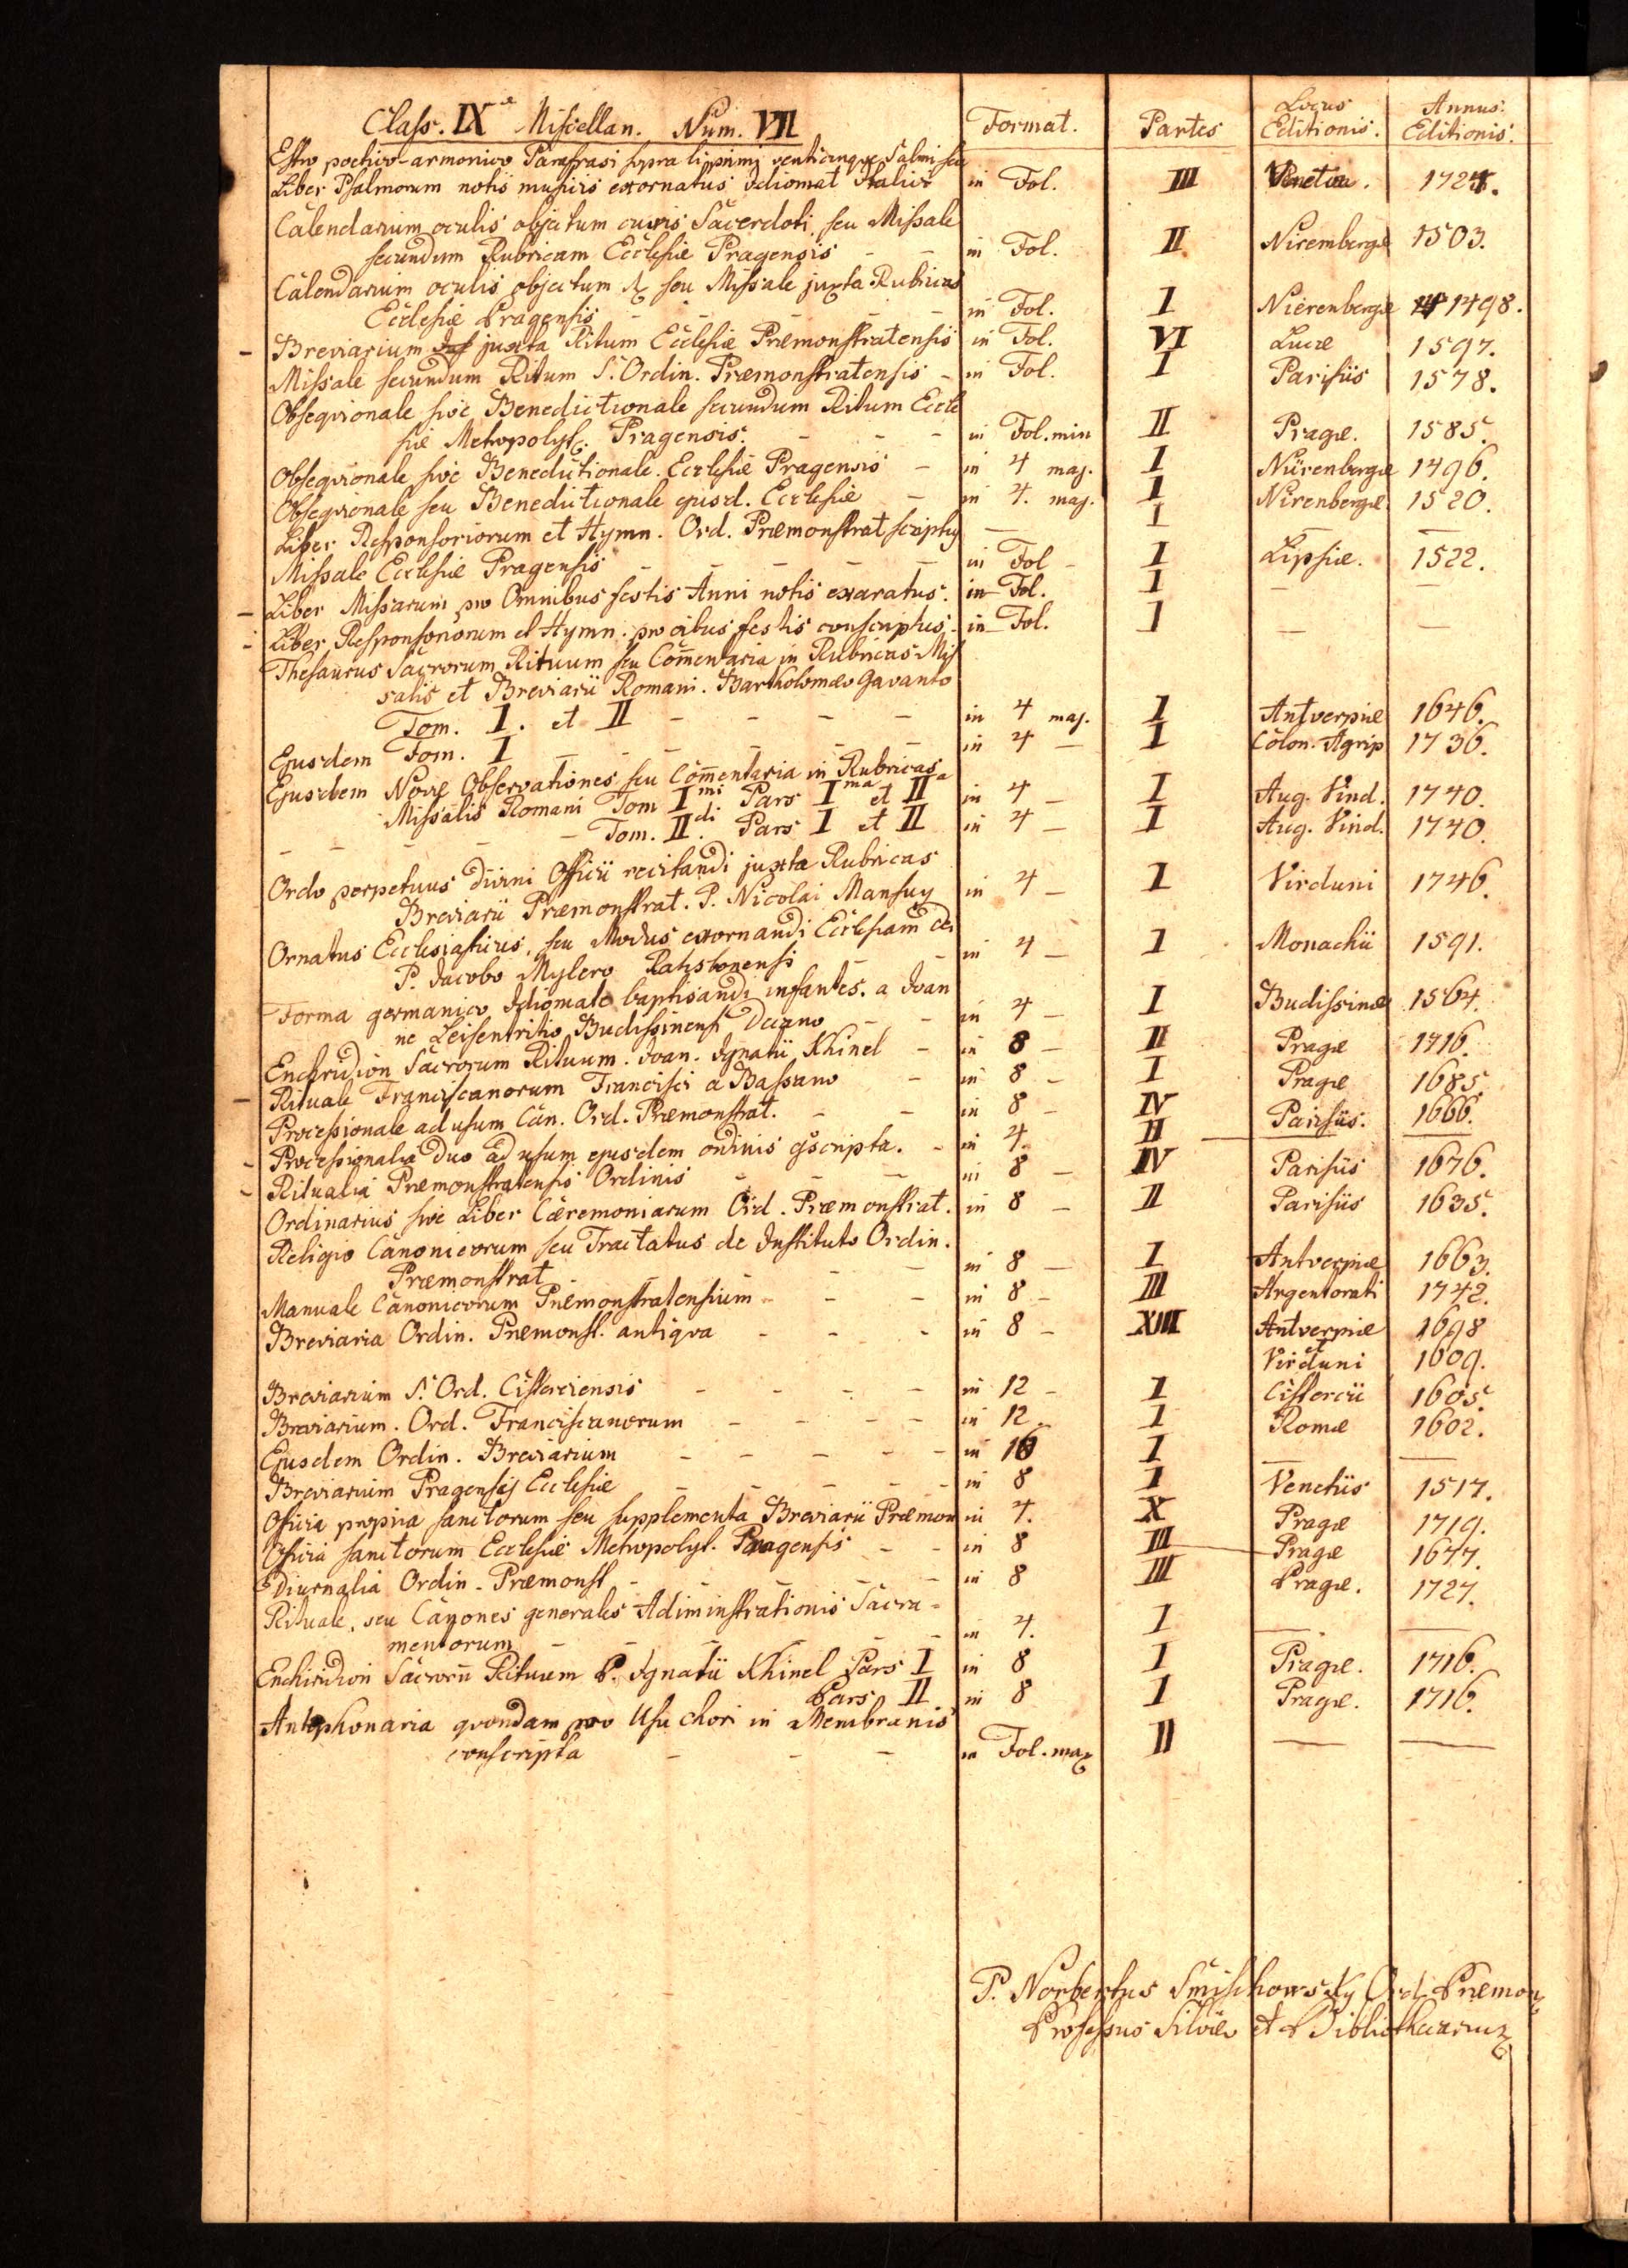 Class. IX ae Miscellan. Num. VII Format. Partes Locus Editionis. Annus Editionis.
Estro poetico-armonico Parafrasi sopra li primi venticinque Salmi seu
Liber Psalmorum notis musicis exornatus Idiomat Italico in Fol. III Venetiae. 1724.
Calendarium oculis objectum cuivis Sacerdoti, seu Missale
secundum Rubricam Ecclesiæ Pragensis - - in Fol. II Nirembergæ 1503.
Calendarium oculis objectum &c seu Missale juxta Rubricas
Ecclesiæ Pragensis - - - - in Fol. I Nierenbergæ 1498.
- Breviarium juxta Ritum Ecclesiæ Præmonstratensis in Fol. VI Lucæ 1597.
Missale secundum Ritum S. Ordin. Præmonstratensis - in Fol. I Parisiis 1578.
Obseqvionale sive Benedictionale secundum Ritum Eccle
siæ Metropolyt. Pragensis. - - - in Fol. min II Pragæ. 1585.
Obseqvionale sive Benedictionale. Ecclesiæ Pragensis - in 4 maj. I Nürenbergæ 1496.
Obseqvionale seu Benedictionale ejusd. Ecclesiæ - in 4. maj. I Nirenbergæ. 1520.
Liber Responsoriorum et Hymn. Ord. Præmonstrat scriptus — I — —
Missale Ecclesiæ Pragensis - - - - in Fol - I Lipsiæ. 1522.
- Liber Missarum pro Omnibus festis Anni notis exaratus. in Fol. I — —
- Liber Responsoriorum et Hymn. pro oibus festis conscriptus. in Fol. I — —
Thesaurus Sacrorum Rituum seu Com̄entaria in Rubricas Mis
salis et Breviarii Romani. Bartholomæo Gavanto
Tom. I. et II - - - - in 4 maj. I Antverpiæ 1646.
Ejusdem Tom. I - - - - in 4 — I Colon. Agrip 1736.
Ejusdem Novæ Observationes seu Com̄entaria in Rubricas
Missalis Romani Tom I mi Pars I ma et II a in 4 — I Aug. Vind. 1740.
- - - - Tom. II di. Pars I et II in 4 — I Aug. Vind. 1740.
Ordo perpetuus Divini Officii recitandi juxta Rubricas
Breviarii Præmonstrat. P. Nicolai Mansuy in 4 — I Virduni 1746.
Ornatus Ecclesiasticus, seu Modus exornandi Ecclesiam
P. Jacobo Mylero Ratisbonensi - - in 4 — I Monachii 1591.
Forma germanico Idiomate baptisandi infantes. a Joan
ne Leisentritio Budissinensi Decano - - in 4 — I Budissinæ 1564.
Enchridion Sacrorum Rituum. Joan. Ignatii Khinel - in 8 — II Pragæ 1716.
- Rituale Franciscanorum Francisci a Bassano - in 8 — I Pragæ 1685.
Processionale ad usum Can. Ord. Præmonstrat. - - in 8 - IV Parisiis. 1666.
- Processionalia Duo ad usum ejusdem ordinis cōscripta. - in 4. II — —
- Ritualia Præmonstratensis Ordinis - - - in 8 — IV Parisiis 1676.
Ordinarius sive Liber Cæremoniarum Ord. Præmonstrat. in 8 — II Parisiis 1635.
Religio Canonicorum seu Tractatus de Instituto Ordin.
Præmonstrat - - - - in 8 — I Antverpiæ 1663.
Manuale Canonicorum Præmonstratensium - - - in 8 - III Argentorati 1742.
Breviaria Ordin. Præmonst. antiqva - - - in 8 - XIII Antverpiæ 1698
et Virduni 1609.
Breviarium S. Ord. Cisterciensis - - - - in 12 - I Cistercii 1605.
Breviarium. Ord. Franciscanorum - - - - in 12 - I Romæ 1602.
Ejusdem Ordin. Breviarium - - - - - in 16 I — —
Breviarium Pragensis Ecclesiæ - - - - - in 8 I Venetiis 1517.
Officia propria sanctorum seu supplementa Breviarii Præmon in 4. X Pragæ 1719.
Officia sanctorum Ecclesiæ Metropolyt. Pragensis - - in 8 III Pragæ 1677.
Diurnalia Ordin. Præmonst - - - - - in 8 III Pragæ. 1727.
Rituale, seu Canones generales Adiministrationis Sacra-
mentorum - - - - - in 4. I — —
Enchiridion Sacrorū Rituum P. Ignatii Khinel Pars I in 8 I Pragæ. 1716.
Pars II in 8 I Pragæ. 1716.
Antiphonaria qvondam pro Usu chori in Membranis
conscripta - - - in Fol. max II — —
P. Norbertus Smischowsky Ord. Præmon
Professus Siloë et Bibliothecarius